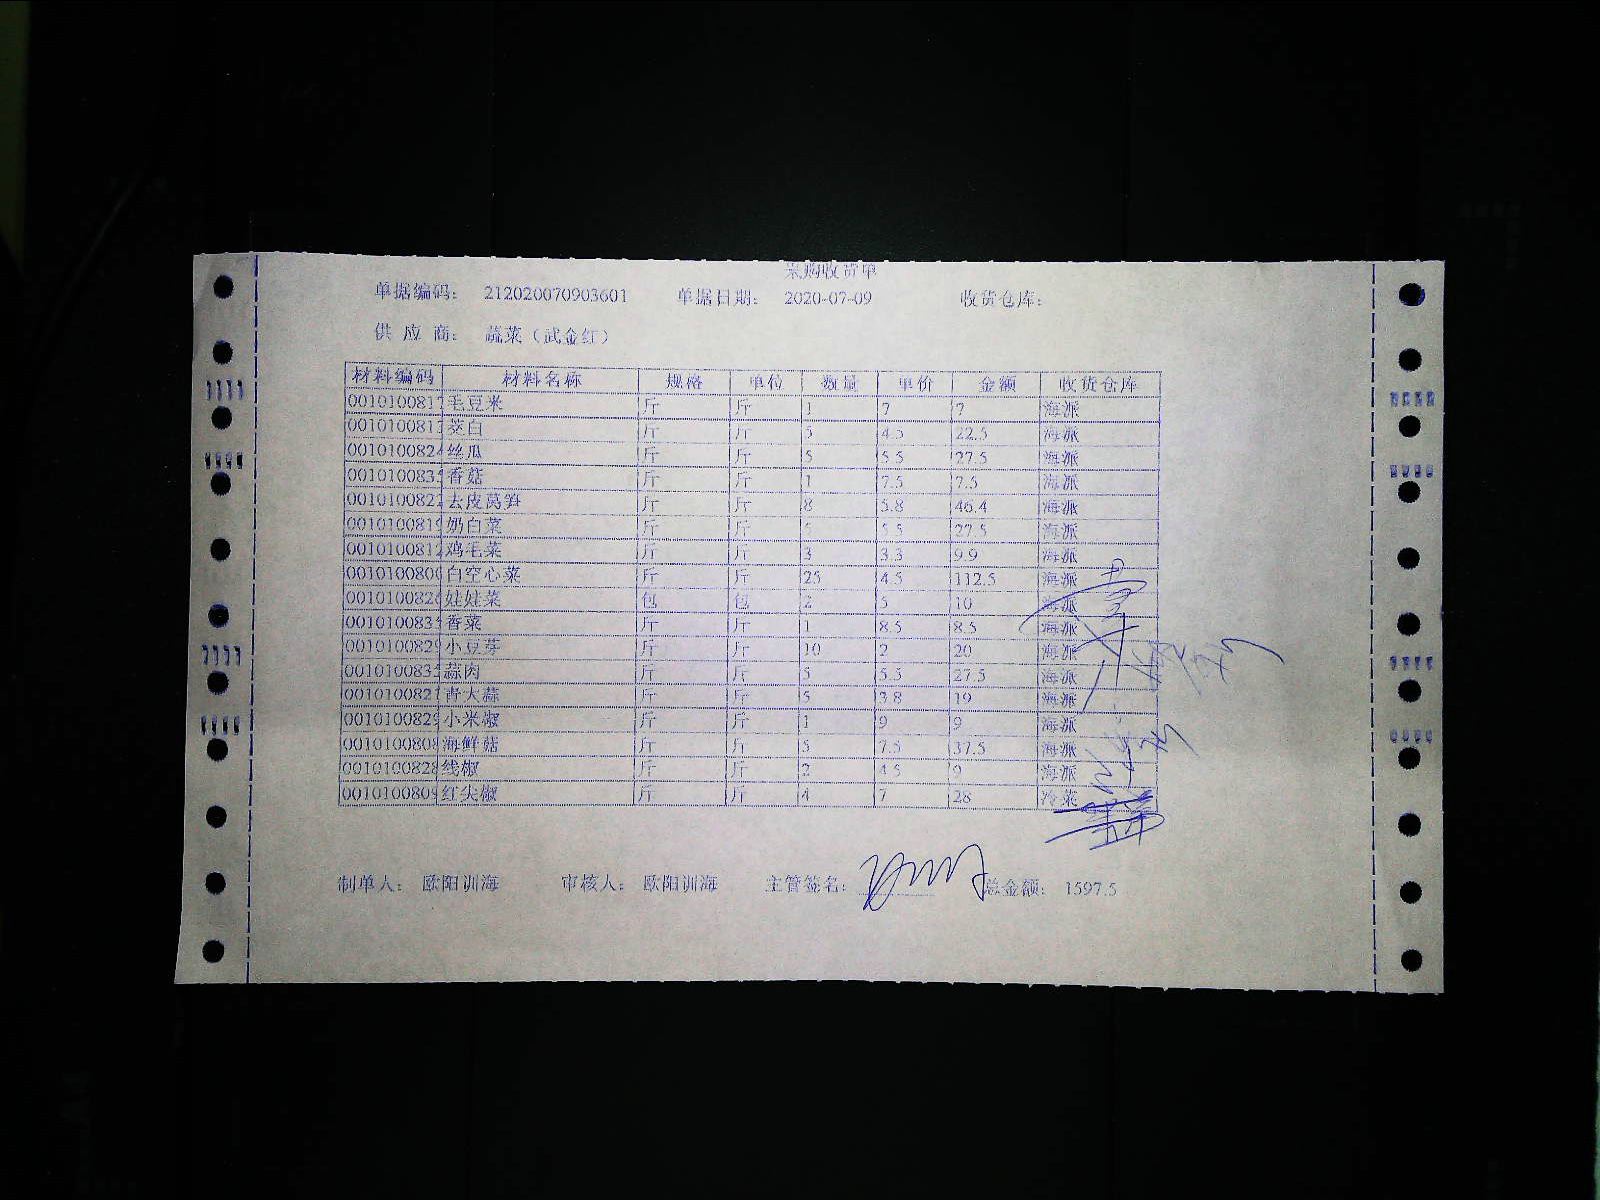 采购收货单
单据编码: 212020070903601 单据日期: 2020-07-09 收货仓库:
供 应 商: 蔬菜（武金红）
材料编码 材料名称 规格 单位 数量 单价 金额 收货仓库
001010081 毛豆米 斤 斤 1 7 7 海派
001010081 茭白 斤 斤 5 4.5 22.5 海派
001010082 丝瓜 斤 斤 5 5.5 27.5 海派
001010083 香菇 斤 斤 1 7.5 7.5 海派
001010082 去皮莴笋 斤 斤 8 5.8 46.4 海派
001010081 奶白菜 斤 斤 5 5.5 27.5 海派
001010081 鸡毛菜 斤 斤 3 3.3 9.9 海派
001010080 白空心菜 斤 斤 25 4.5 112.5 海派
001010082 娃娃菜 包 包 2 5 10 海派
001010083 香菜 斤 斤 1 8.5 8.5 海派
001010082 小豆芽 斤 斤 10 2 20 海派
001010083 蒜肉 斤 斤 5 5.5 27.5 海派
001010082 青大蒜 斤 斤 5 3.8 19 海派
001010082 小米椒 斤 斤 1 9 9 海派
001010080 海鲜菇 斤 斤 5 7.5 37.5 海派
001010082 线椒 斤 斤 2 4.5 9 海派
001010080 红尖椒 斤 斤 4 7 28 冷菜
制单人: 欧阳训海 审核人: 欧阳训海 主管签名: 总金额: 1597.5